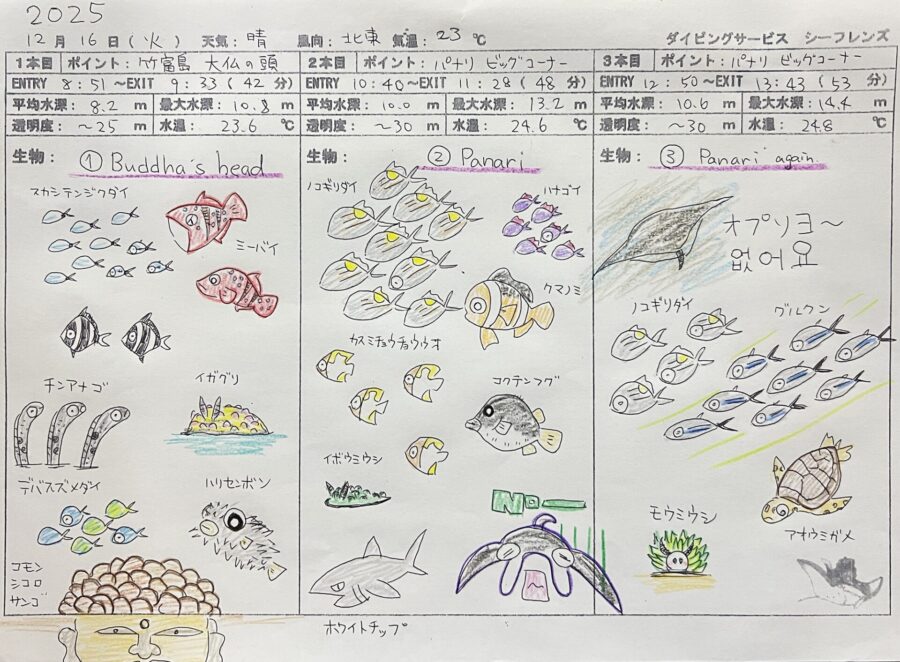 2025
12月 16日(火) 天気: 晴 風向: 北東 気温: 23 ℃ ダイビングサービス シーフレンズ
1本目 ポイント: 竹富島 大仏の頭
ENTRY 8:51 〜EXIT 9:33 (42 分)
平均水深: 8.2 m 最大水深: 10.8 m
透明度: 〜25 m 水温: 23.6 ℃
生物: ① Buddha's head
スカシテンジクダイ
ミーバイ
チンアナゴ
イガグリ
デバスズメダイ
ハリセンボン
コモン
シコロ
サンゴ
2本目 ポイント: パナリ ビッグコーナー
ENTRY 10:40 〜EXIT 11:28 (48 分)
平均水深: 10.0 m 最大水深: 13.2 m
透明度: 〜30 m 水温: 24.6 ℃
生物: ② Panari
ノコギリダイ
ハナゴイ
クマノミ
カスミチョウチョウウオ
コクテンフグ
イボウミウシ
No
ホワイトチップ
3本目 ポイント: パナリ ビッグコーナー
ENTRY 12:50 〜EXIT 13:43 (53 分)
平均水深: 10.6 m 最大水深: 14.4 m
透明度: 〜30 m 水温: 24.8 ℃
生物: ③ Panari again.
オプソヨ〜
없어요
ノコギリダイ
グルクン
モウミウシ
アオウミガメ